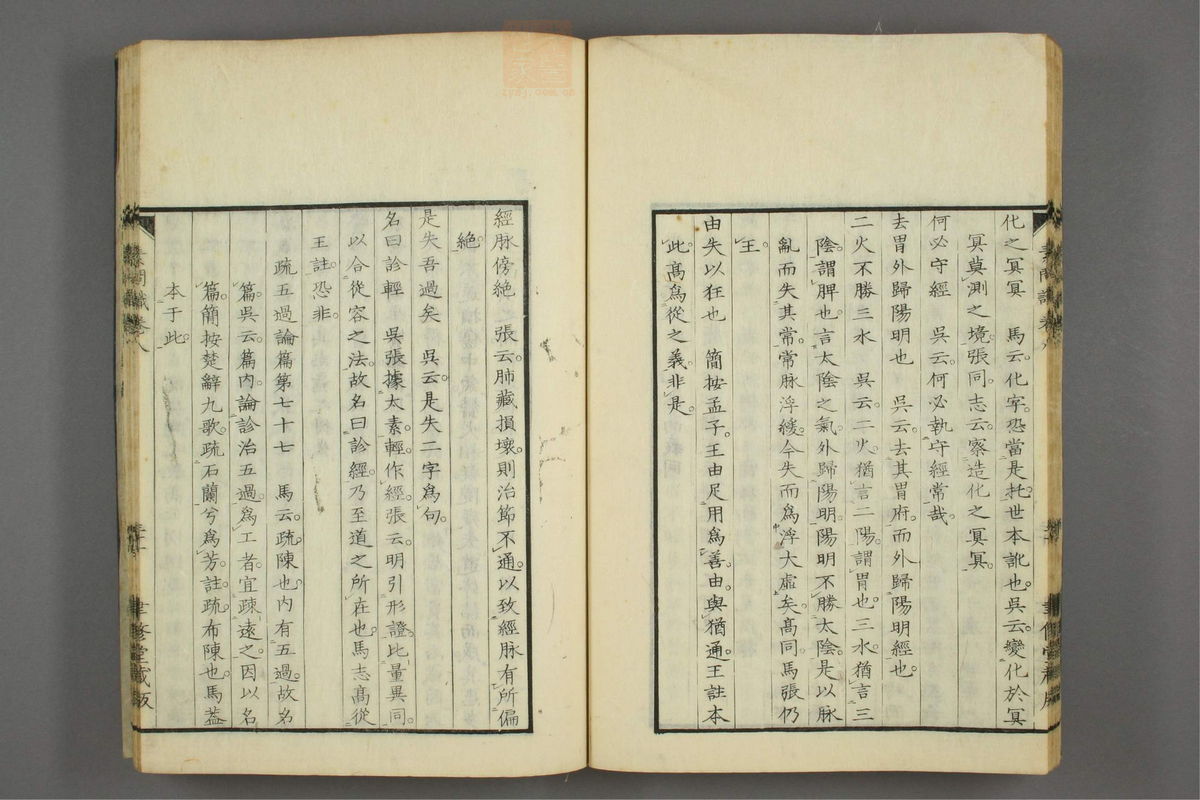 化之冥冥 馬云。化字。恐當是托。世本訛也。吳云。變化於冥
冥莫測之境。張同。志云。察造化之冥冥。
何必守經 吳云。何必執守經常哉。
去胃外歸陽明也 吳云。去其胃府。而外歸陽明經也。
二火不勝三水 吳云。二火。猶言二陽。謂胃也。三水。猶言三
陰。謂脾也。言太陰之氣。外歸陽明。陽明不勝太陰。是以脉
亂而失其常。常脉浮緩。今失而爲浮大虛矣。高同。馬張仍
王。
由失以狂也 簡按孟子。王由足用爲善。由與猶通。王註本
此。高爲從之義。非是。
經脉傍絶 張云。肺藏損壞。則治節不通。以致經脉有所偏
絶。
是失吾過矣 吳云。是失二字爲句。
名曰診輕 吳張據太素。輕作經。張云。明引形證。比量異同。
以合從容之法。故名曰診經。乃至道之所在也。馬志高從
王註。恐非。
疏五過論篇第七十七 馬云。疏。陳也。內有五過。故名
篇。吳云。篇內。論診治五過。爲工者。宜疎遠之。因以名
篇。簡按楚辭九歌。疏石蘭兮爲芳。註。疏。布陳也。馬蓋
本于此。
素問識卷八
聿修堂藏版